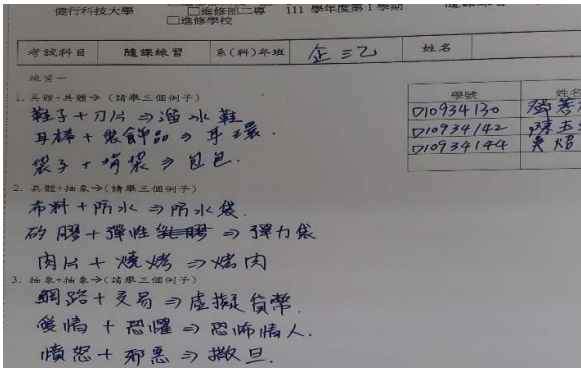 健行科技大學
□進修部二專 111 學年度第1學期
□進修學校
考試科目 隨課練習 系(科)年班 企三乙 姓名
練習一
學號 姓名
D10934130
D10934142
D10934144
1. 具體+具體→ (請舉三個例子)
鞋子+刀片⇒溜冰鞋
耳棒+裝飾品⇒耳環.
袋子+ ⇒包包.
2. 具體+抽象→(請舉三個例子)
布料+防水⇒防水袋.
矽膠+彈性⇒彈力袋
肉片+燒烤⇒烤肉
3. 抽象+抽象→(請舉三個例子)
網路+交易⇒虛擬貨幣.
愛情+恐懼⇒恐怖情人.
憤怒+邪惡⇒撒旦.